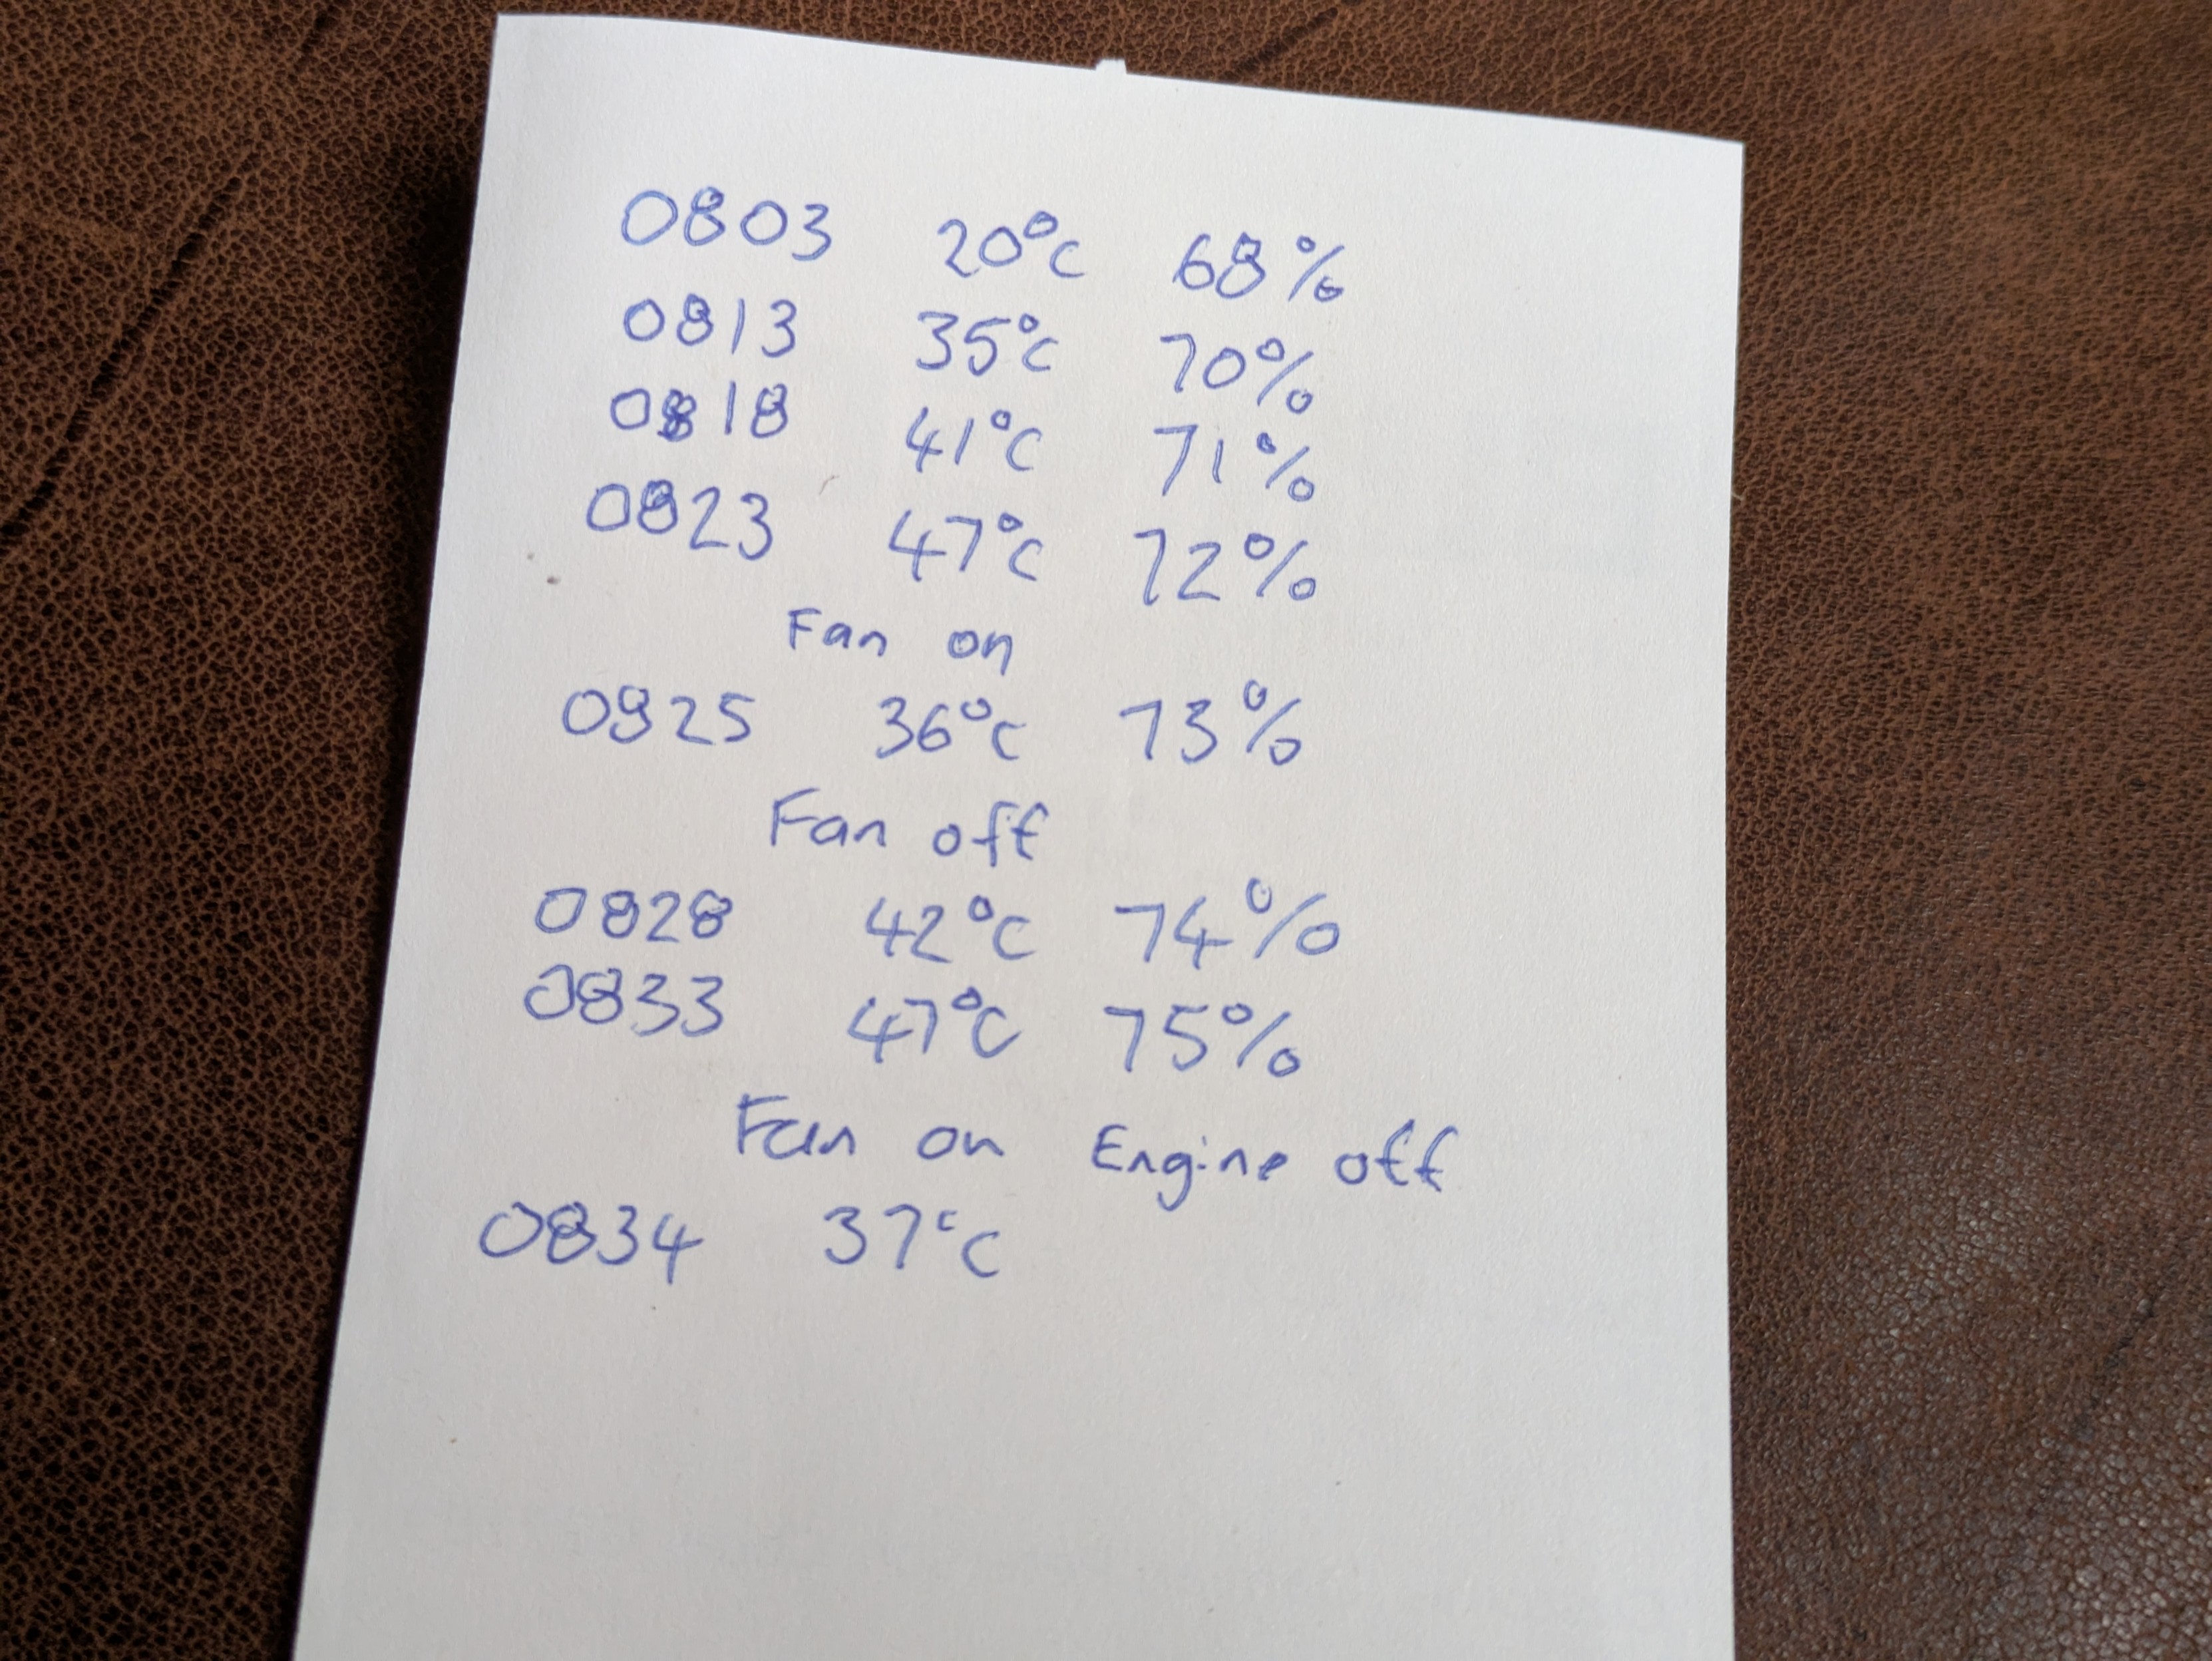 0803 20°C 68%
0813 35°C 70%
0818 41°C 71%
0823 47°C 72%
Fan on
0825 36°C 73%
Fan off
0828 42°C 74%
0833 47°C 75%
Fan on Engine off
0834 37°C